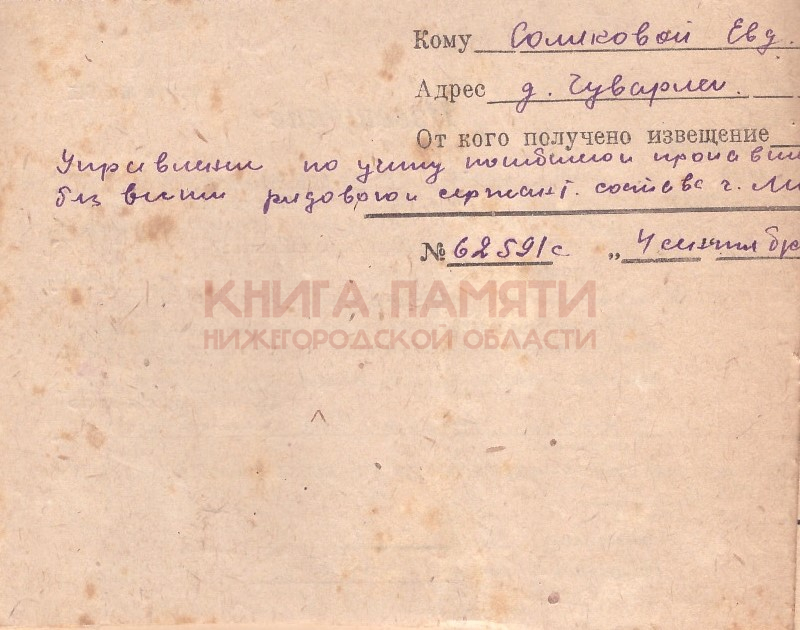 Кому Соликовой Евд.
Адрес д. Чуварлеи.
От кого получено извещение
Управлени по учету погибшего и пропавш
без вести рядового и сержант. состава г. Мо
№ 62591с „ 4 сентября
КНИГА ПАМЯТИ
НИЖЕГОРОДСКОЙ ОБЛАСТИ